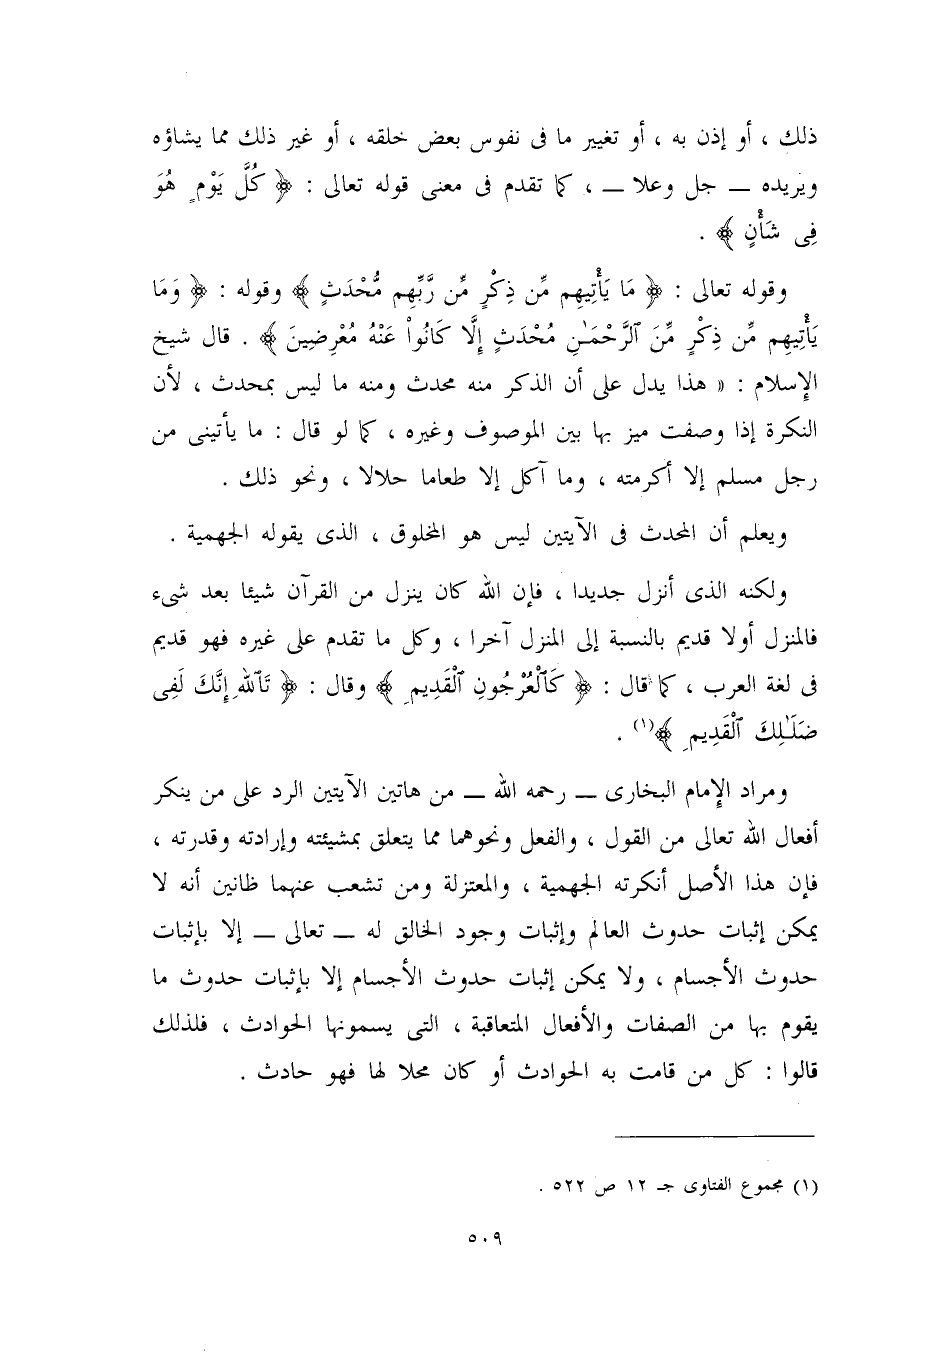 ذلك ، أو إذن به ، أو تغيير ما فى نفوس بعض خلقه ، أو غير ذلك مما يشاؤه
ويريده ــ جل وعلا ــ ، كما تقدم فى معنى قوله تعالى : ﴿ كُلَّ يَوْمٍ هُوَ
فِى شَأْنٍ ﴾ .
وقوله تعالى : ﴿ مَا يَأْتِيهِم مِّن ذِكْرٍ مِّن رَّبِّهِم مُّحْدَثٍ ﴾ وقوله : ﴿ وَمَا
يَأْتِيهِم مِّن ذِكْرٍ مِّنَ ٱلرَّحْمَـٰنِ مُحْدَثٍ إِلَّا كَانُواْ عَنْهُ مُعْرِضِينَ ﴾ . قال شيخ
الإسلام : « هذا يدل على أن الذكر منه محدث ومنه ما ليس بمحدث ، لأن
النكرة إذا وصفت ميز بها بين الموصوف وغيره ، كما لو قال : ما يأتينى من
رجل مسلم إلا أكرمته ، وما آكل إلا طعاما حلالا ، ونحو ذلك .
ويعلم أن المحدث فى الآيتين ليس هو المخلوق ، الذى يقوله الجهمية .
ولكنه الذى أنزل جديدا ، فإن الله كان ينزل من القرآن شيئا بعد شىء
فالمنزل أولا قديم بالنسبة إلى المنزل آخرا ، وكل ما تقدم على غيره فهو قديم
فى لغة العرب ، كما قال : ﴿ كَٱلْعُرْجُونِ ٱلْقَدِيمِ ﴾ وقال : ﴿ تَٱللَّهِ إِنَّكَ لَفِى
ضَلَـٰلِكَ ٱلْقَدِيمِ ﴾(١) .
ومراد الإمام البخارى ــ رحمه الله ــ من هاتين الآيتين الرد على من ينكر
أفعال الله تعالى من القول ، والفعل ونحوهما مما يتعلق بمشيئته وإرادته وقدرته ،
فإن هذا الأصل أنكرته الجهمية ، والمعتزلة ومن تشعب عنهما ظانين أنه لا
يمكن إثبات حدوث العالم وإثبات وجود الخالق له ــ تعالى ــ إلا بإثبات
حدوث الأجسام ، ولا يمكن إثبات حدوث الأجسام إلا بإثبات حدوث ما
يقوم بها من الصفات والأفعال المتعاقبة ، التى يسمونها الحوادث ، فلذلك
قالوا : كل من قامت به الحوادث أو كان محلا لها فهو حادث .
(١) مجموع الفتاوى جـ ١٢ ص ٥٢٢ .
٥٠٩